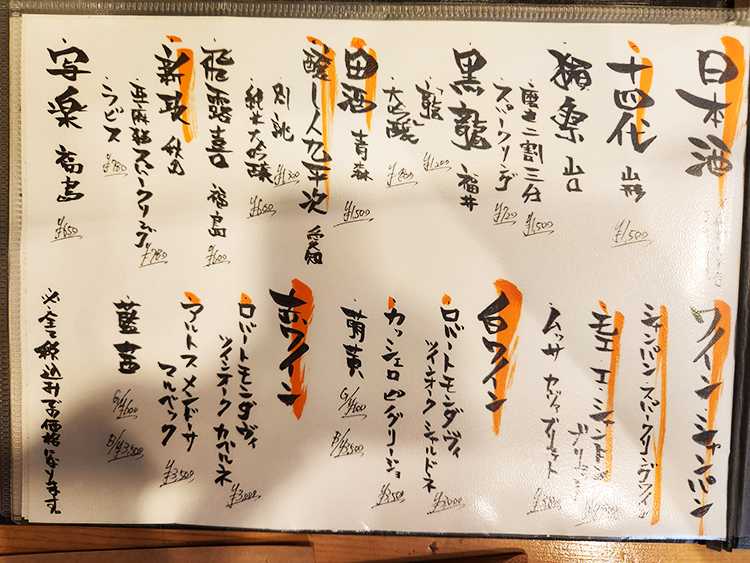 日本酒
十四代 山形 ¥1,500
獺祭 山口
磨き二割三分 ¥1,500
スパークリング ¥720
黒龍 福井
「龍」 ¥1,200
大吟醸 ¥800
田酒 青森 ¥1,500
醸し人九平次 愛知
別誂 ¥1,300
純米大吟醸 ¥600
飛露喜 福島 ¥600
新政 秋田
亜麻猫スパークリング ¥980
ラピス ¥780
写楽 福島 ¥650
ワイン シャンパン
シャンパン スパークリングワイン
モエ エ シャンドン
ブリュット
ムッサ カヴァブリュット
白ワイン
ロバートモンダヴィ
ツインオーク シャルドネ ¥3,000
カッシェロ Pグリージョ ¥3,500
菊黄 G/¥600 B/¥3,500
赤ワイン
ロバートモンダヴィ
ツインオーク カバルネ ¥3,000
アルトス メンドーサ
マルベック ¥3,500
藍茜 G/¥600 B/¥3,500
※全て税込み価格になります。